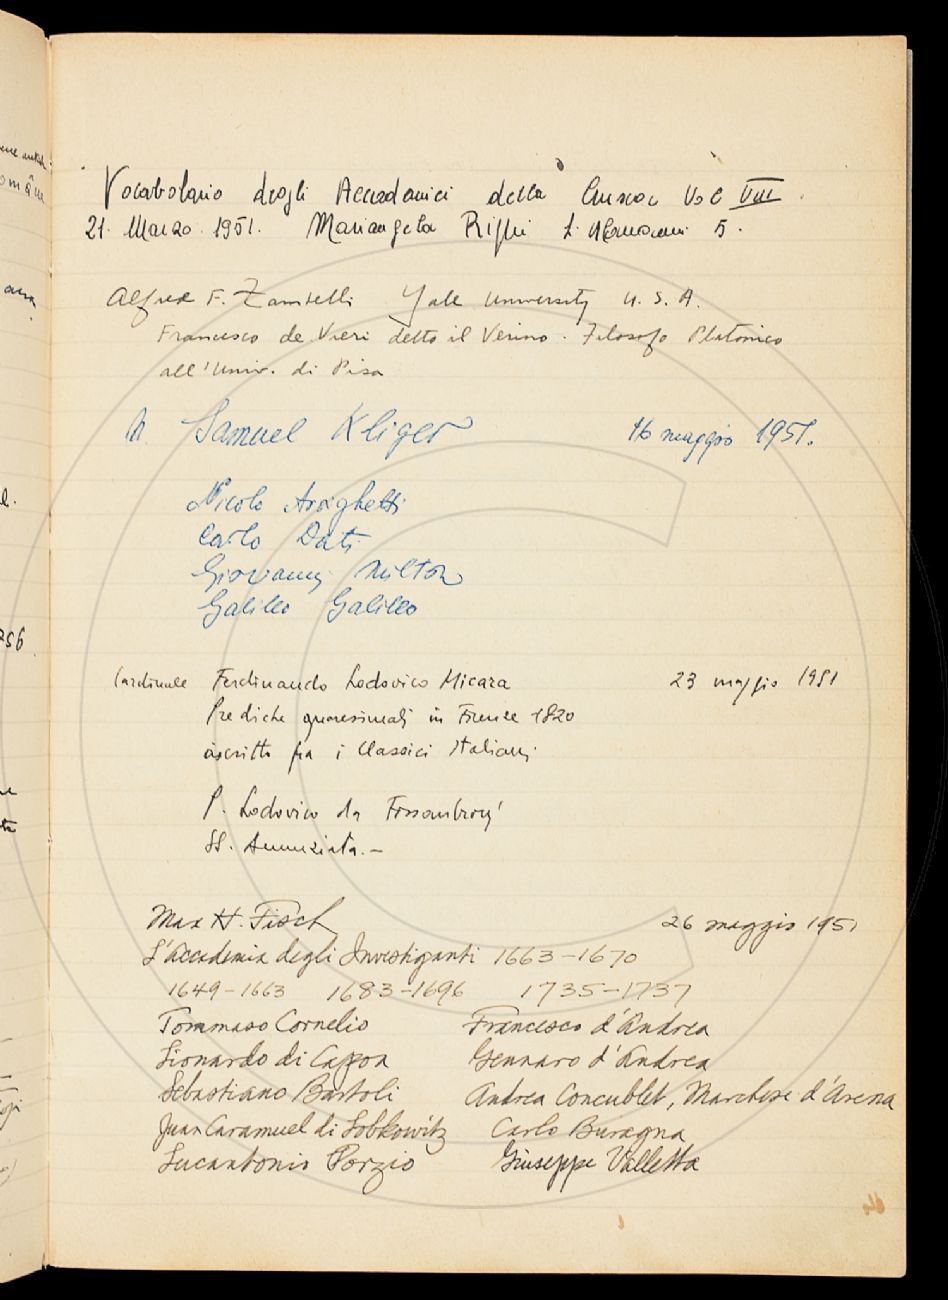 Vocabolario degli Accademici della Crusca Vol VIII
21. Marzo. 1951. Mariangela Righi 5.
Alfred F. Zamitelli Yale University U. S. A.
Francesco de Vieri detto il Verino. Filosofo Platonico
all'Univ. di Pisa
Samuel Kliger 16 maggio 1951.
Nicolo Arrighetti
Carlo Dati
Giovanni Milton
Galileo Galileo
Cardinale Ferdinando Lodovico Micara 23 maggio 1951
Prediche quaresimali in Firenze 1820
ascritto fra i Classici Italiani
P. Lodovico da Fossombrony
SS. Annunziata. –
Max H. Fisch 26 maggio 1951
L'Accademia degli Investiganti 1663–1670
1649–1663 1683–1696 1735–1737
Tommaso Cornelio Francesco d'Andrea
Lionardo di Capoa Gennaro d'Andrea
Sebastiano Bartoli Andrea Concublet, Marchese d'Arena
Juan Caramuel di Lobkowitz Carlo Buragna
Lucantonio Porzio Giuseppe Valletta